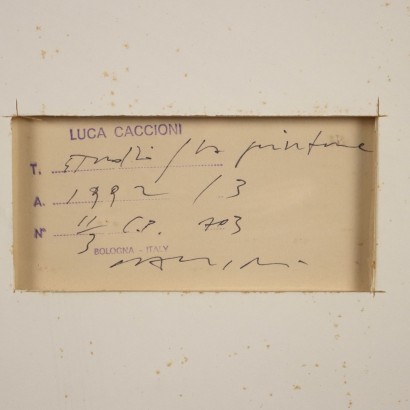 LUCA CACCIONI
T. Studi / la pittura
A. 1992 / 3
N° 11/3 C.P. 703
BOLOGNA - ITALY